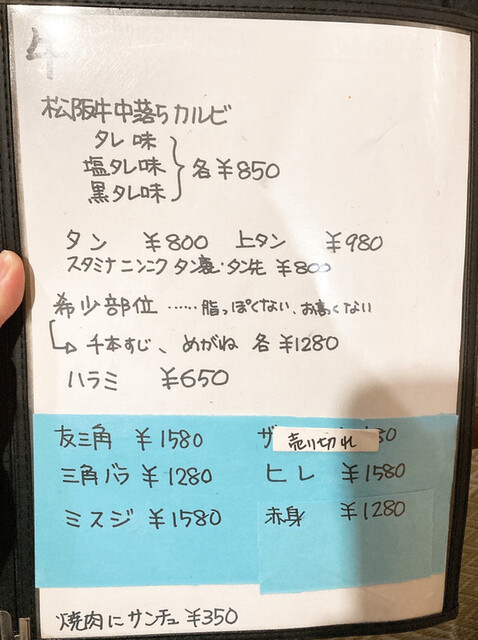 牛
松阪牛中落ちカルビ
タレ味
塩タレ味
黒タレ味
各¥850
タン ¥800 上タン ¥980
スタミナニンニク タン裏・タン先 ¥800
希少部位……脂っぽくない、お高くない
千本すじ、めがね 各¥1280
ハラミ ¥650
友三角 ¥1580 ザ 売り切れ 80
三角バラ ¥1280 ヒレ ¥1580
ミスジ ¥1580 赤身 ¥1280
焼肉にサンチュ ¥350